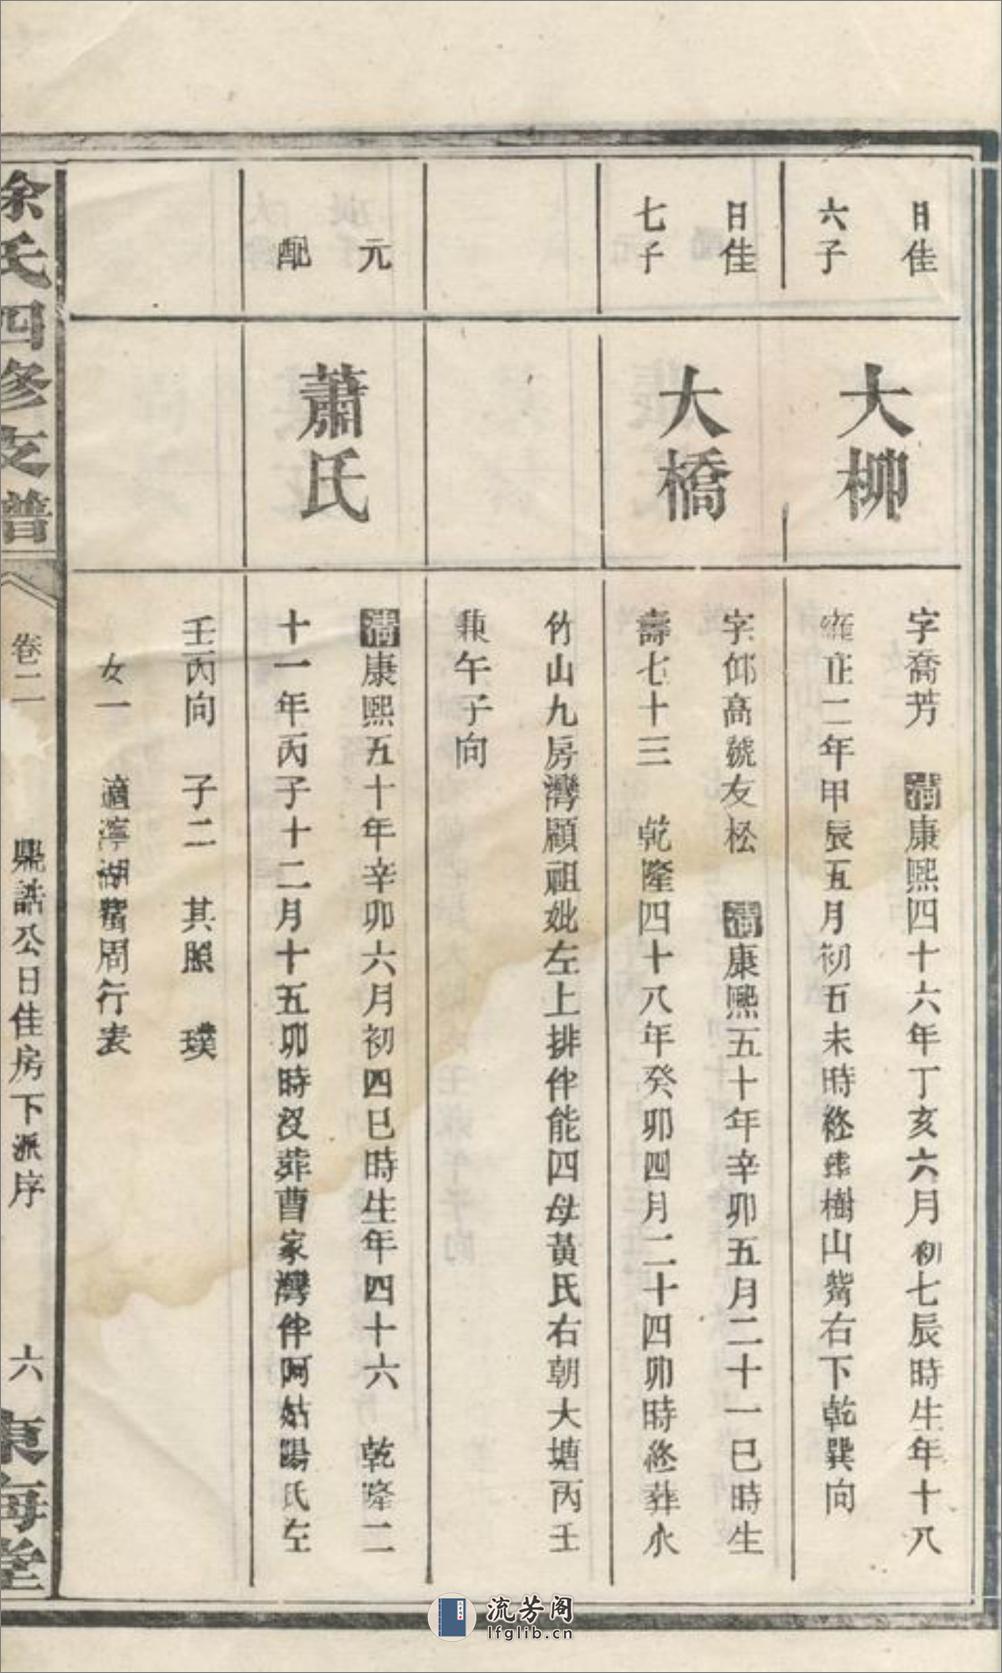 日佳
六子
大柳
字喬芳 清康熙四十六年丁亥六月初七辰時生年十八
雍正二年甲辰五月初五未時終葬樹山觜右下乾巽向
日佳
七子
大橋
字仰高號友松 清康熙五十年辛卯五月二十一巳時生
壽七十三 乾隆四十八年癸卯四月二十四卯時終葬水
竹山九房灣顧祖妣左上排伴能四母黃氏右朝大塘丙壬
兼午子向
元
配
蕭氏
清康熙五十年辛卯六月初四巳時生年四十六 乾隆二
十一年丙子十二月十五卯時沒葬曹家灣伴阿姑陽氏左
壬丙向 子二 其照 璞
女一 適濘湖觜周行表
徐氏四修支譜
卷二
鼎誥公日佳房下派序
六
東海堂
流芳阁
lfglib.cn